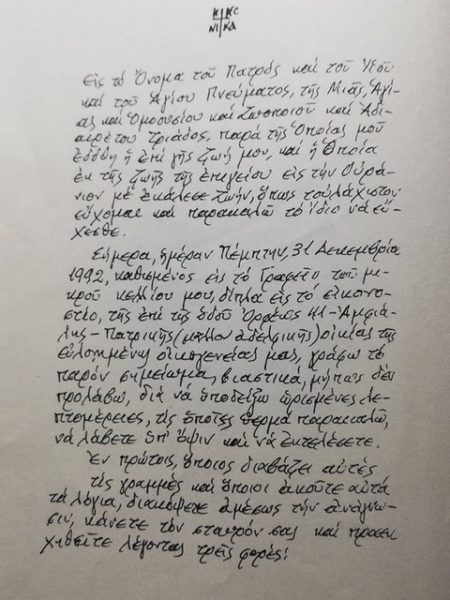 ΙС ΧС
ΝΙ ΚΑ
Εἰς τὸ Ὄνομα τοῦ Πατρὸς καὶ τοῦ Υἱοῦ
καὶ τοῦ Ἁγίου Πνεύματος, τῆς Μιᾶς, Ἁγί-
ας καὶ Ὁμοουσίου καὶ Ζωοποιοῦ καὶ Ἀδι-
αιρέτου Τριάδος, παρὰ τῆς Ὁποίας μοῦ
ἐδόθη ἡ ἐπὶ γῆς ζωή μου, καὶ ἡ Ὁποία
ἐκ τῆς ζωῆς τῆς ἐπιγείου εἰς τὴν Οὐρά-
νιον μὲ ἐκάλεσε ζωήν, ὅπως τοὐλάχιστον
εὔχομαι καὶ παρακαλῶ τὸ ἴδιο νὰ εὔ-
χεσθε.
Σήμερα, ἡμέραν Πέμπτην, 31 Δεκεμβρίου
1992, καθισμένος εἰς τὸ Γραφεῖο τοῦ μι-
κροῦ κελλίου μου, δίπλα εἰς τὸ εἰκονο-
στάσιο, τῆς ἐπὶ τῆς ὁδοῦ Ὀρφέως 41-Ἀμφιά-
λης-Πατρικῆς (μᾶλλον ἀδελφικῆς) οἰκίας τῆς
εὐλογημένης οἰκογενείας μας, γράφω τὸ
παρὸν σημείωμα, βιαστικά, μήπως δὲν
προλάβω, διὰ νὰ ὑποδείξω ὡρισμένες λε-
πτομέρειες, τὶς ὁποῖες θερμὰ παρακαλῶ,
νὰ λάβετε ὑπ' ὄψιν καὶ νὰ ἐκτελέσετε.
Ἐν πρώτοις, ὅποιος διαβάζει αὐτὲς
τὶς γραμμὲς καὶ ὅποιοι ἀκοῦτε αὐτὰ
τὰ λόγια, διακόψετε ἀμέσως τὴν ἀνάγνω-
σιν, κάνετε τὸν σταυρόν σας καὶ προσευ-
χηθεῖτε λέγοντας τρεῖς φορές!